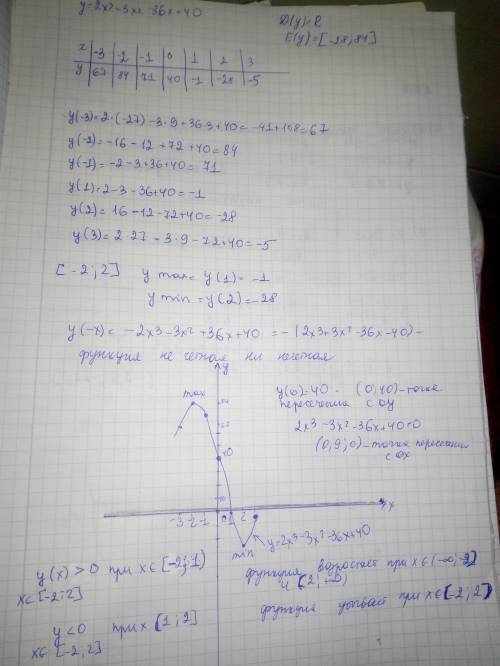 y=2x³-3x²-36x+40
D(y)=R
E(y)=[-28;84]
x -3 -2 -1 0 1 2 3
y 67 84 71 40 -1 -28 -5
y(-3)=2·(-27)-3·9+36·3+40=-41+108=67
y(-2)=-16-12+72+40=84
y(-1)=-2-3+36+40=71
y(1)=2-3-36+40=-1
y(2)=16-12-72+40=-28
y(3)=2·27-3·9-72+40=-5
[-2;2] y max=y(1)=-1
y min=y(2)=-28
y(-x)=-2x³-3x²+36x+40=-(2x³+3x²-36x-40)-
функция не четная ни нечетная
y
max
84
40
y(0)=40 - (0;40)-точка
пересечения с oy
2x³-3x²-36x+40=0
(0,9;0)-точка пересечения
с ox
-3 -2 -1 0 1 2
x
min
y=2x³-3x²-36x+40
y(x)>0 при x∈[-2;1)
x∈[-2;2]
функция возрастает при x∈(-∞;-2]
и [2;+∞)
y<0 при x (1;2]
x∈[-2;2]
функция убывает при x∈[-2;2]